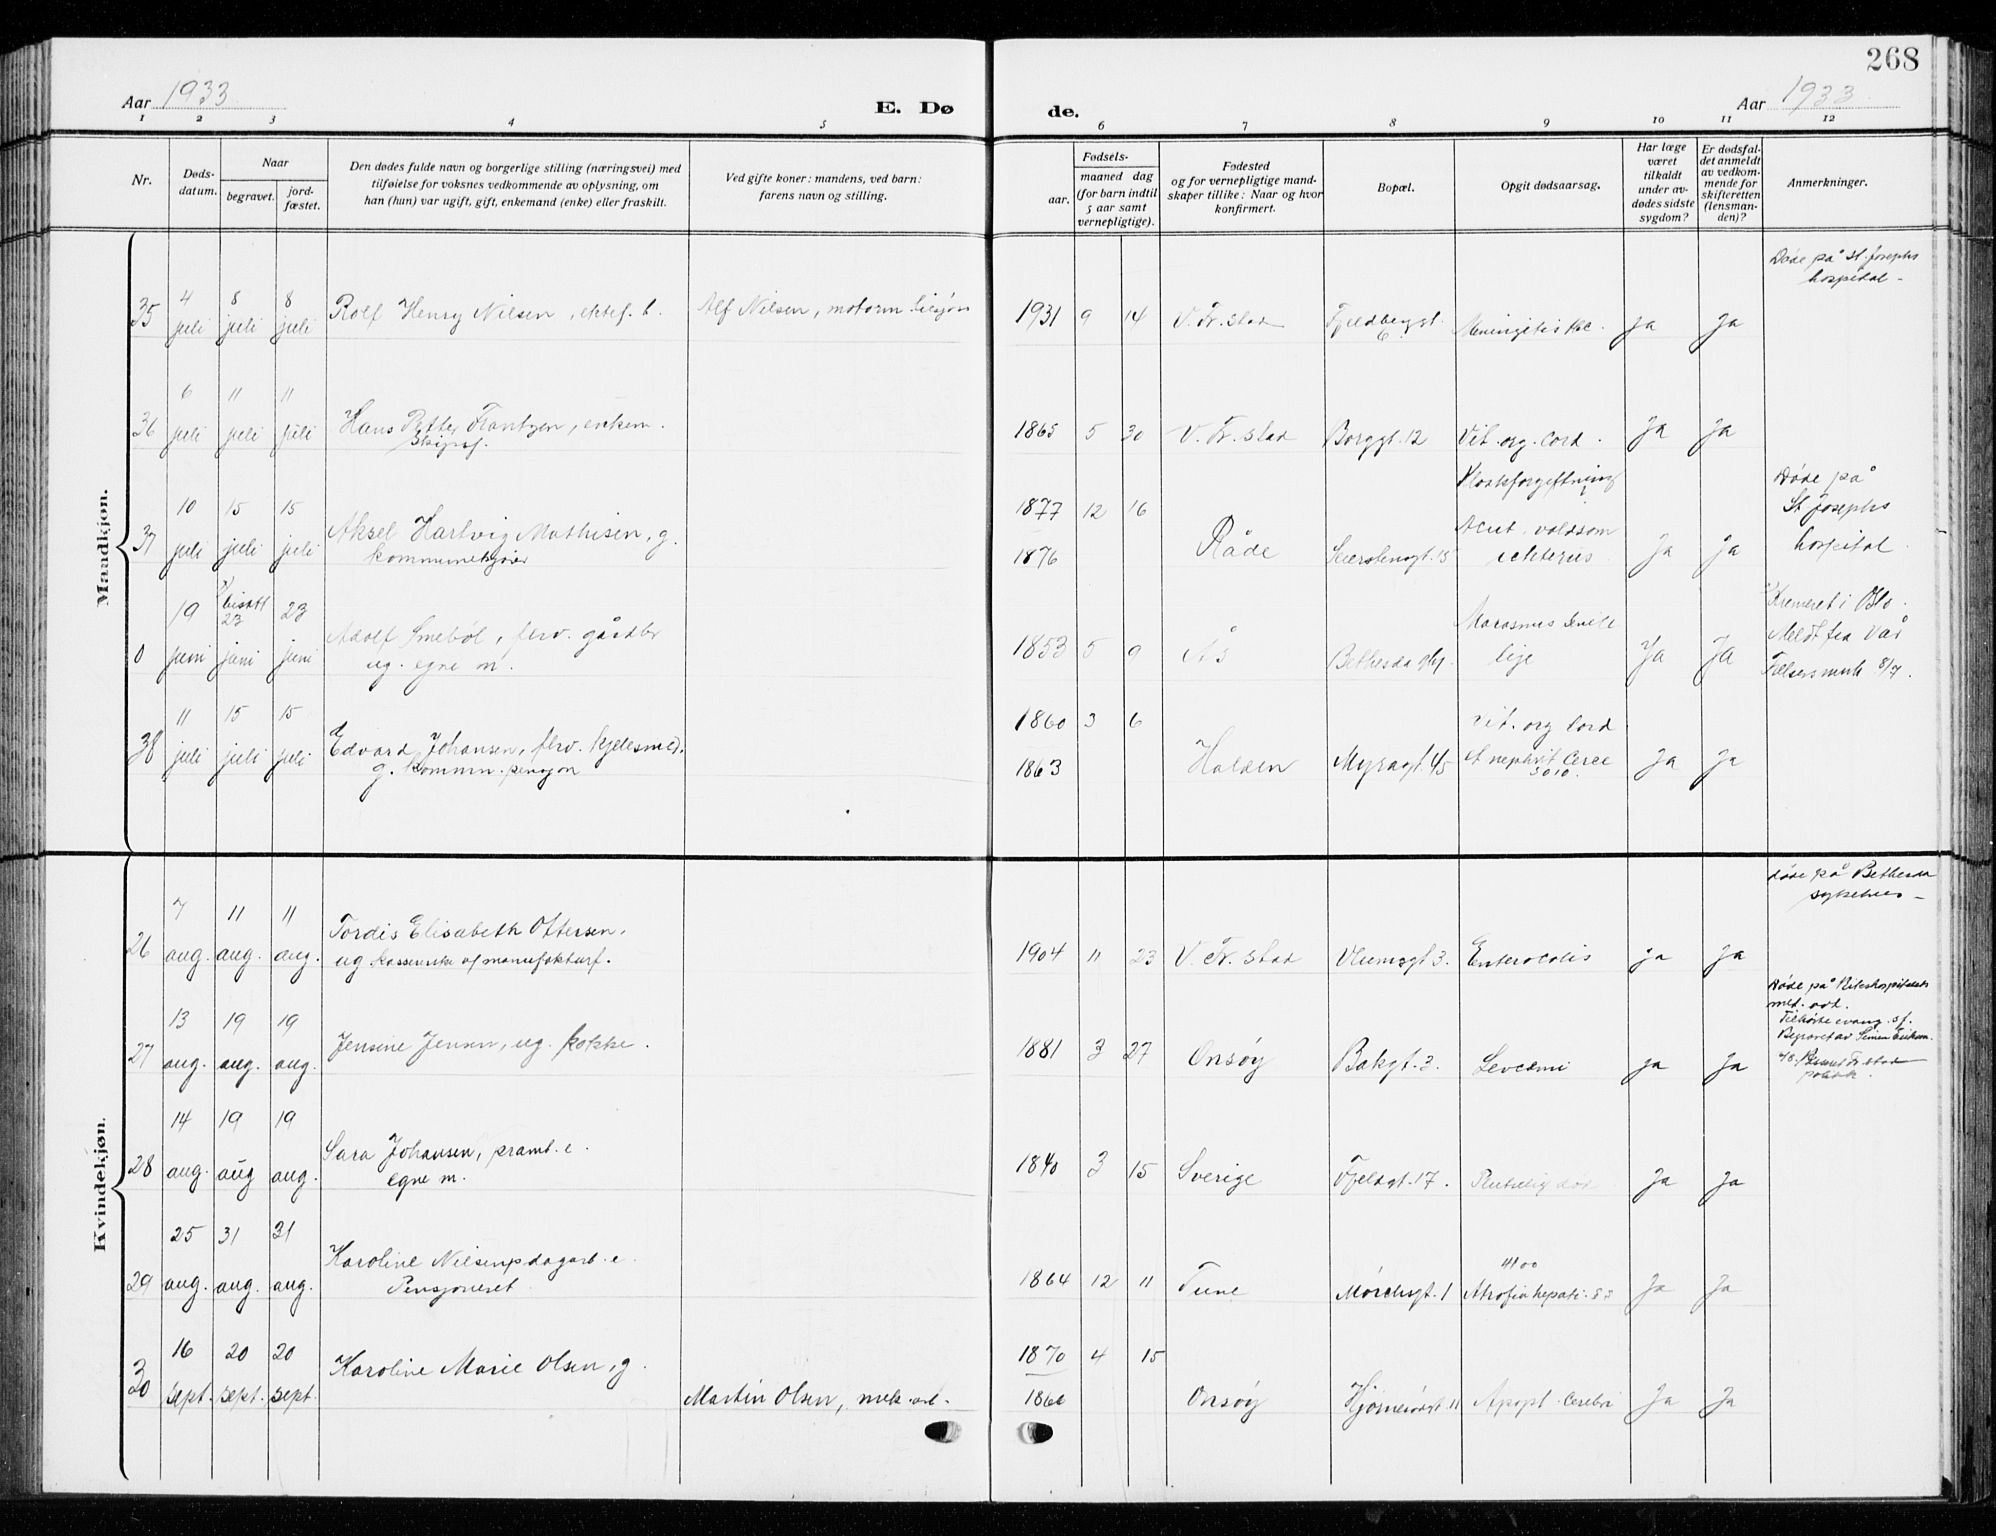 268
Aar 1933
E. Dø
de.
Aar 1933
1 2 3 4 5 6 7 8 9 10 11 12
Nr.
Døds-
datum.
Naar
begravet.
jord-
fæstet.
Den dødes fulde navn og borgerlige stilling (næringsvei) med
tilføielse for voksnes vedkommende av oplysning, om
han (hun) var ugift, gift, enkemand (enke) eller fraskilt.
Ved gifte koner: mandens, ved barn:
farens navn og stilling.
Fødsels-
aar.
maaned dag
(for barn indtil
5 aar samt
vernepligtige).
Fødested
og for vernepligtige mand-
skaper tillike: Naar og hvor
konfirmert.
Bopæl.
Opgit dødsaarsag.
Har læge
været
tilkaldt
under av-
dødes sidste
sygdom?
Er dødsfal-
det anmeldt
av vedkom-
mende for
skifteretten
(lensman-
den)?
Anmerkninger.
Mandkjøn.
Døde på St. Josephs
hospital -
35 4 juli 8 juli 8 juli Rolf Henry Nilsen, ektef. b. Alf Nilsen, motorm. 1931 9 14 V. Fr.stad Fjeldberggt. 6 Meningitis Ja Ja
36 6 juli 11 juli 11 juli Hans Petter Frantzen, enkem. 1865 5 30 V. Fr.stad Borggt. 12 Vit. org. cord. Ja Ja
37 10 juli 15 juli 15 juli Aksel Hartvig Mathisen, g.
kommunekjører
1877 12 16
1876 Råde
Blodforgiftning
Acut. voldsom
ickterus Ja ja
Døde på
St Josephs
hospital.
0 19 juni bisatt 23 juni 23 juni Adolf Smebøl, forv. gårdbr
ug. egne m.
1853 5 9 Ås Bethesda Marasmus senile Ja Ja
Kremeret i Oslo.
Meldt fra Vår
Frelsers 8/7.
38 11 juli 15 juli 15 juli Edvard Johansen, forv. kjelesmed.
g. kommun. pensjon
1860 3 6
1863 Halden Myragt. 45
Vit. org cord
et nephrit
Ja Ja
Kvindekjøn.
døde på Bethesda
sykehus -
26 7 aug. 11 aug. 11 aug. Tordis Elisabeth Ottersen,
ug kassererske
1904 11 23 V. Fr. stad Vlumsgt 3. Enterocolis ja ja
27 13 aug. 19 aug. 19 aug. Jensine Jensen, ug. kokke.
1881 3 27 Onsøy Bakgt. 3. Levcemi ja ja
Døde på Rikshospitalets
med. avd.
Tilhørte evang. sf.
Begravet av
28 14 aug. 19 aug 19 aug. Sara Johansen, pramb. e.
egne m.
1840 3 15 Sverige Fjeldgt. 17. Plutselig død Ja Ja
29 25 aug. 31 aug. 31 aug. Karoline Nilsen, dagarb. e.
Pensjoneret
1864 12 11 Tune Mørchsgt. 1 Atrofia hepati. Ja Ja
30 16 sept. 20 sept. 20 sept. Karoline Marie Olsen, g.
Martin Olsen, mek. arb.
1870 4 15
Onsøy Apopl. cerebri Ja Ja